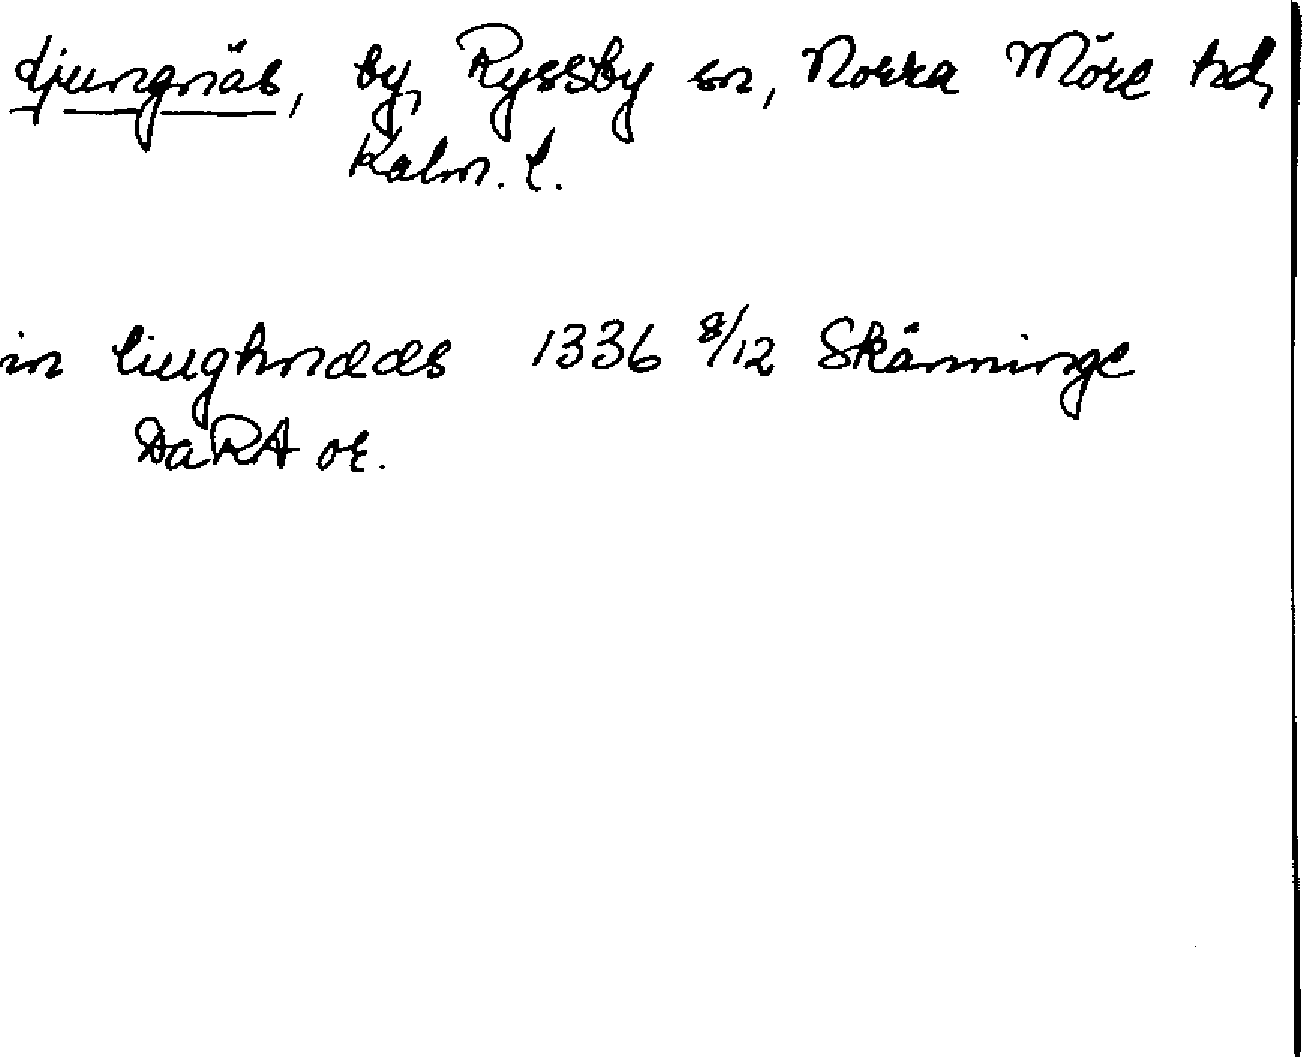 Ljungnäs, by, Ryssby sn, Norra Möre hd,
Kalm. l.
in liughnæs 1336 8/12 Skänninge
DaRA or.